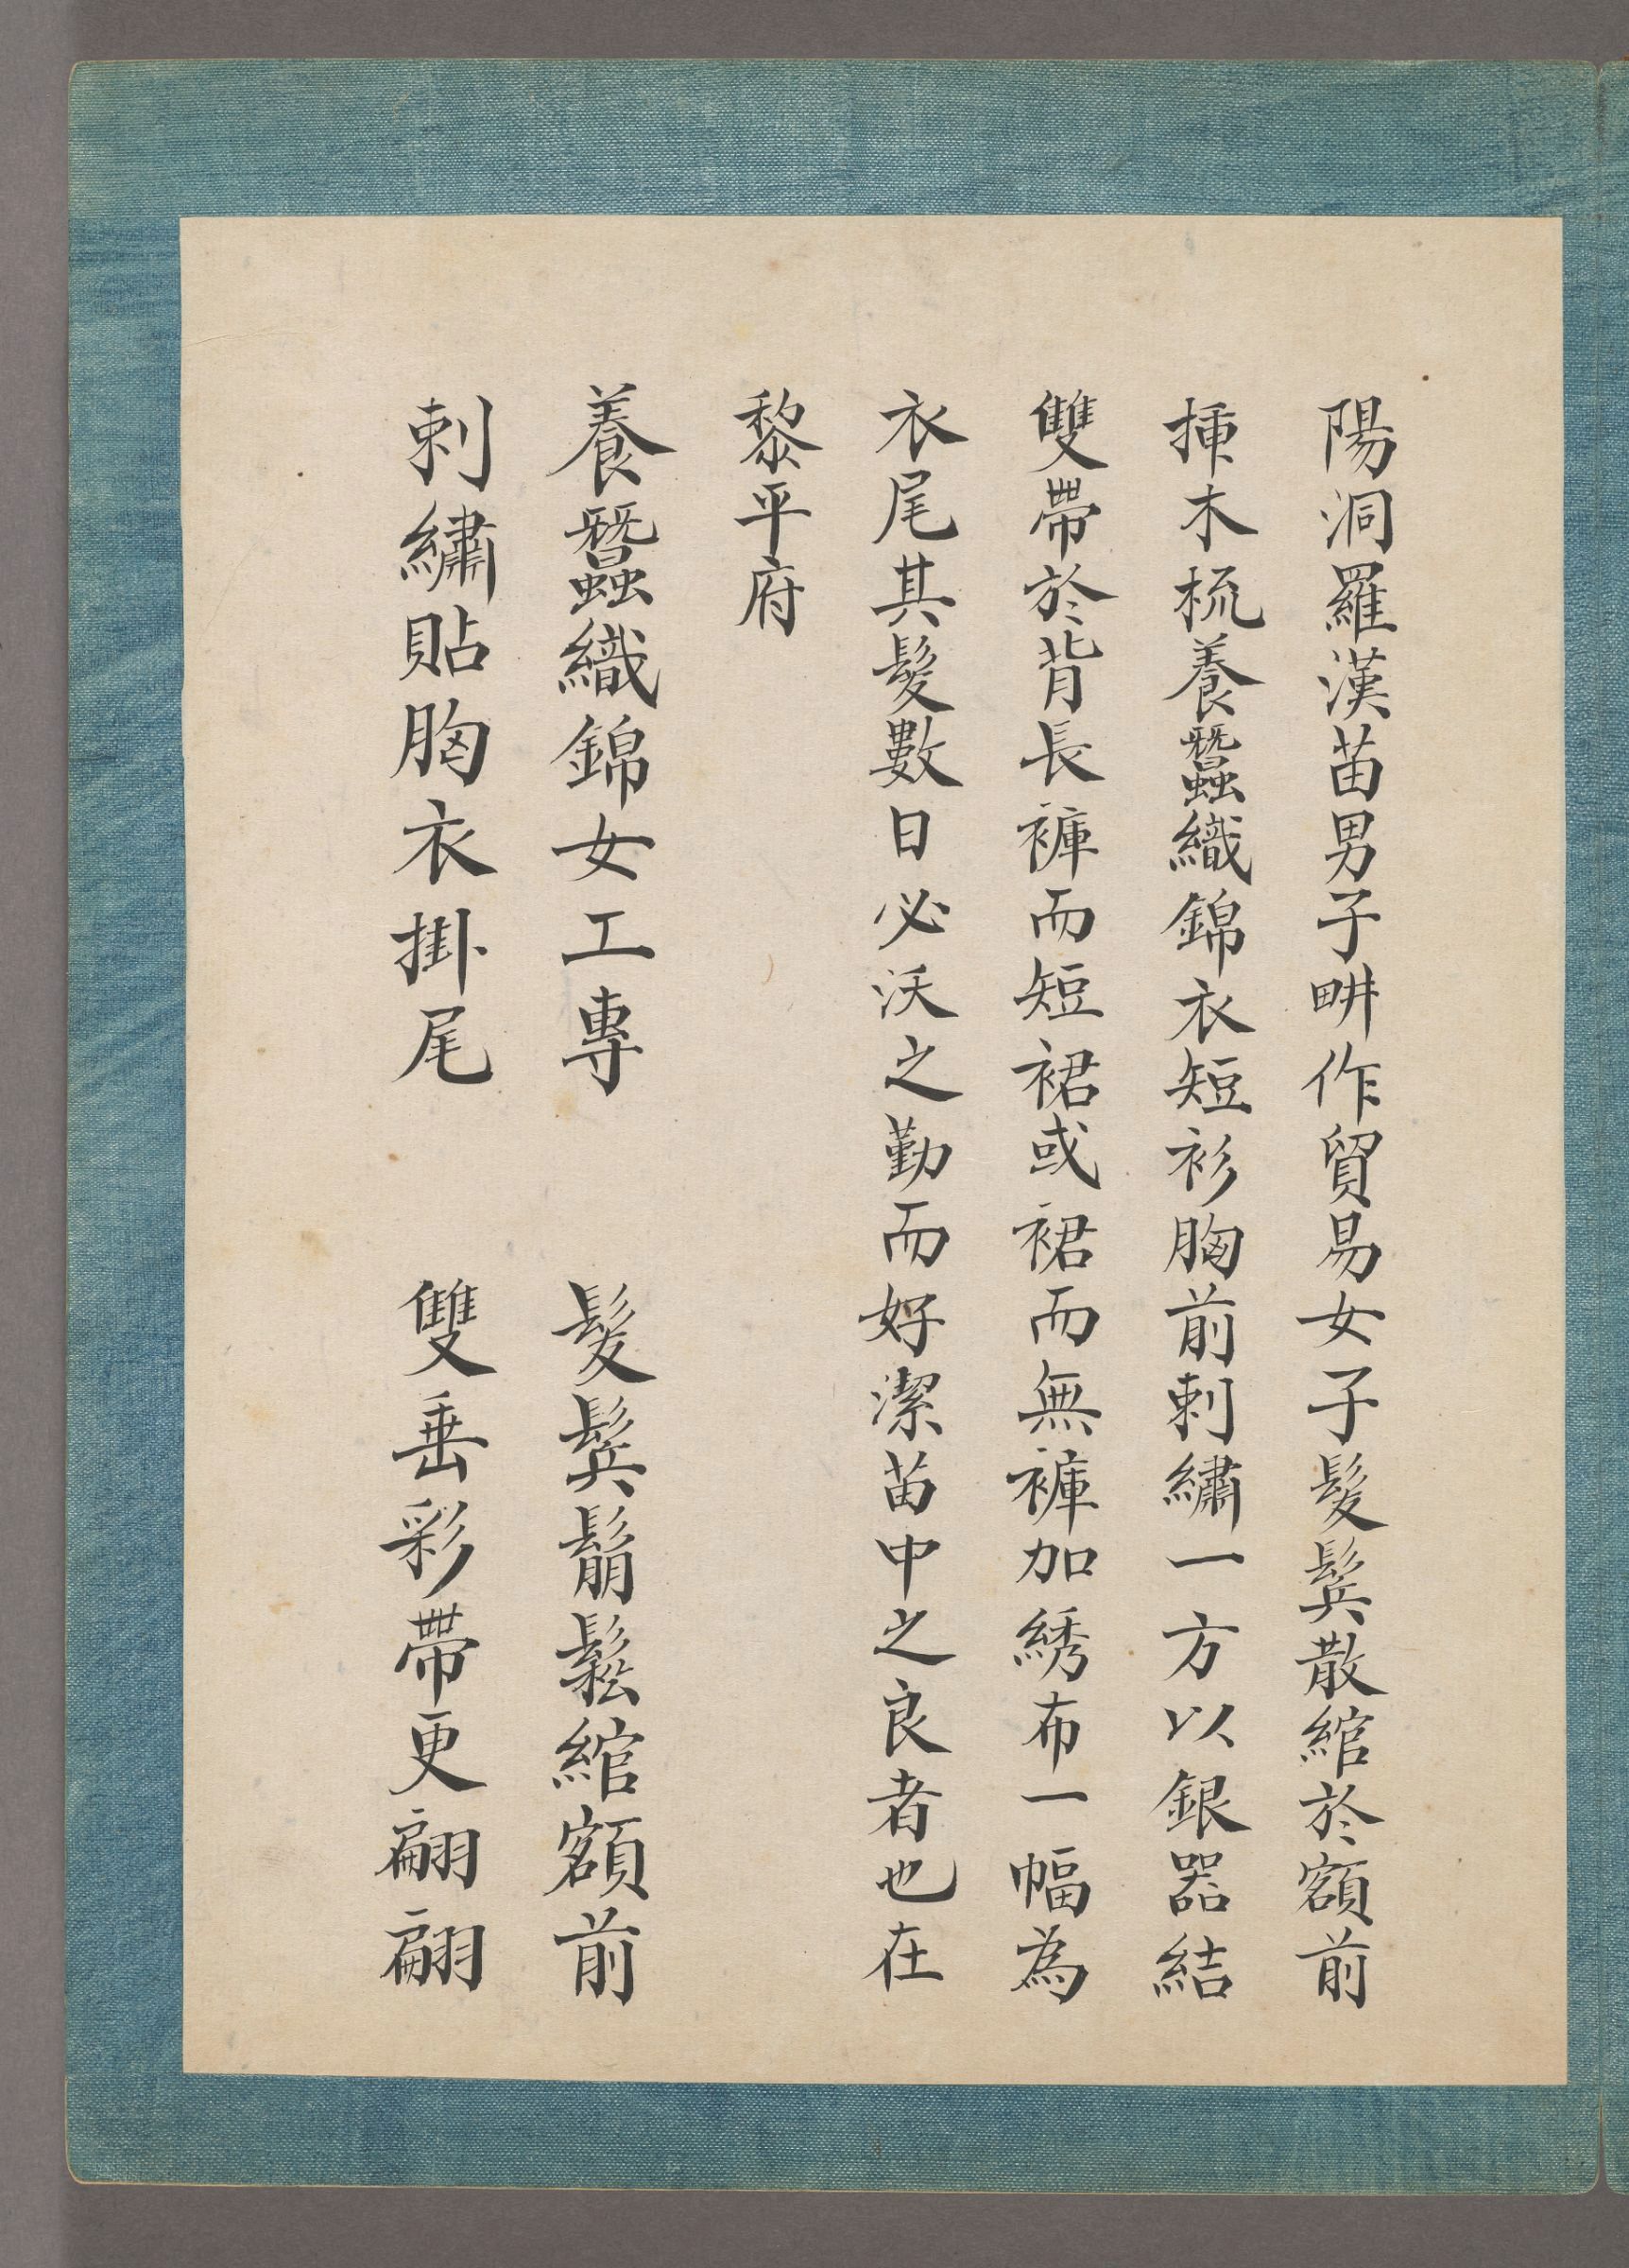 陽洞羅漢苗男子畊作貿易女子髮鬂散綰於額前
揷木梳養蠶織錦衣短衫胸前刺繡一方以銀器結
雙帶於背長褲而短裙或裙而無褲加綉布一幅為
衣尾其髮數日必沃之勤而好潔苗中之良者也在
黎平府
養蠶織錦女工專 髮鬂鬅鬆綰額前
刺繡貼胸衣掛尾 雙垂彩帶更翩翩